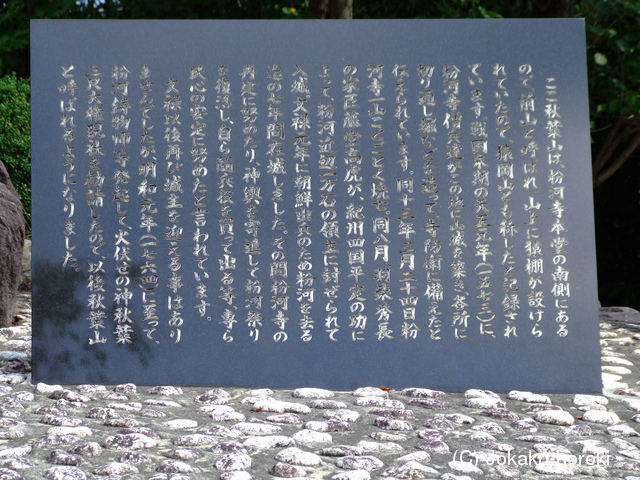 ここ秋葉山は、粉河寺本堂の南側にある
ので、前山と呼ばれ、山上に猿棚が設けら
れていたので、猿岡山とも称したと記録され
ています。戦国末期の天正元年（一五七三）に、
粉河寺
この地に山城を築き、各所に
切り通し
を造って、寺防衛に備えたと
伝えられています。同十三年三月二十四日粉
河寺一山ことごとく焼亡。同八月、羽柴秀長
の家臣藤堂高虎が、紀州四国平定の功に
よって、粉河近辺一万石の領主に封ぜられて
入城、文禄元年に朝鮮出兵のため粉河を去る
迄の七年間在城しました。その間粉河寺の
再建に努めたり、神輿を寄進して粉河祭り
を復活し、自ら
を買って出る等、専ら
民心の安定に努めたと言われています。
文禄以後再び城主を迎える事はあり
ませんでしたが、明和元年（一七六四）に至って、
粉河鋳物師等が
して、火伏せの神秋葉
大権現
を勧請したので、以後秋葉山
と呼ばれるようになりました。
(C) Jokakunohoroki